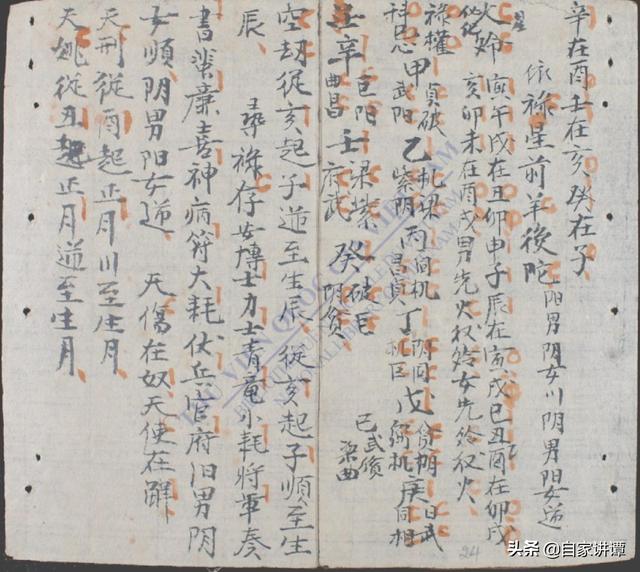 辛在酉壬在亥癸在子
依祿星前羊後陀 阳男阴女川阴男阳女逆
火鈴寅午戌在丑卯申子辰在寅戌巳丑酉在卯戌
亥卯未在酉戌男先火次鈴女先鈴次火
祿權科忌甲 貞破武阳 乙 机梁紫阴 丙 同机昌貞 丁 阴同机巨 戊 貪阴弼机 庚 日武同相
己 武貪梁曲
辛 巨阳曲昌 壬 梁紫府武 癸 破巨阴貪
空劫從亥起子逆至生辰從亥起子順至生
辰 尋祿存安博士力士青竜小耗將軍奏
書蜚廉喜神病符大耗伏兵官府阳男阴
女順阴男阳女逆 天傷在奴天使在解
天刑從酉起正月川至生月
天姚從丑起正月逆至生月
THƯ VIỆN QUỐC GIA VIỆT NAM
NATIONAL LIBRARY OF VIETNAM
24
头条 @自家讲谭